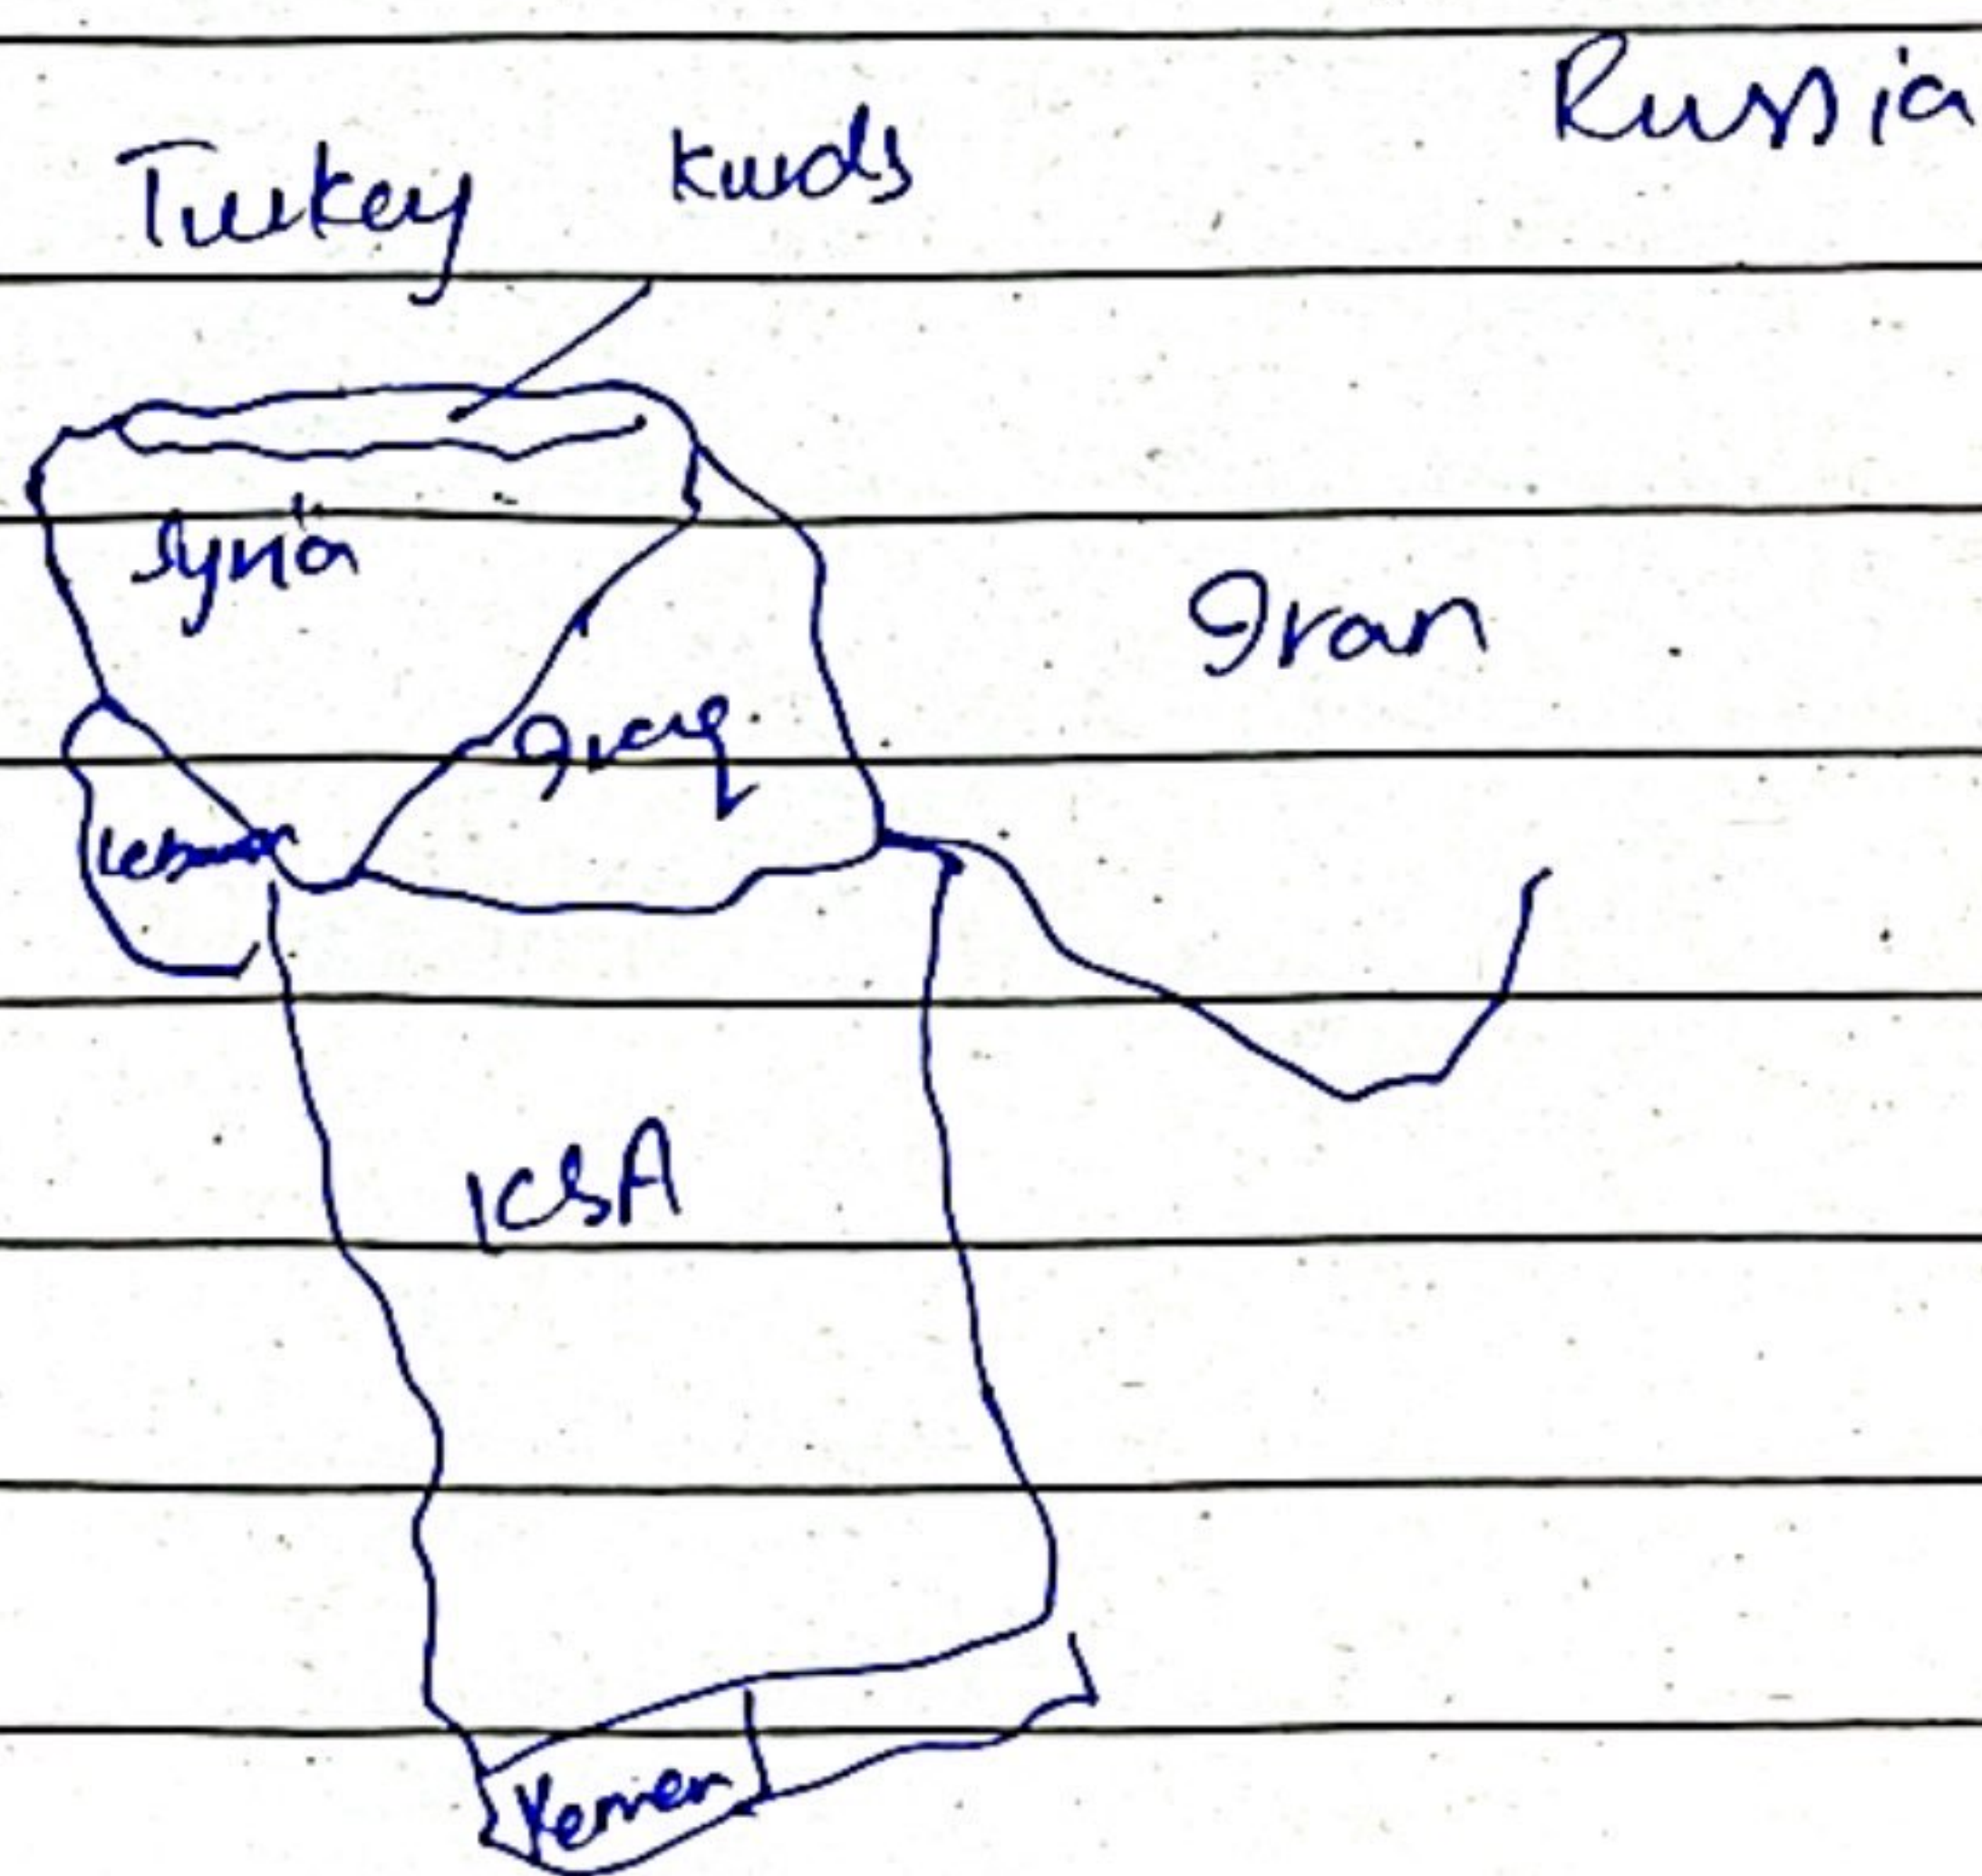 Russia
Turkey
Kurds
Syria
Iran
Iraq
Lebanon
KSA
Yemen